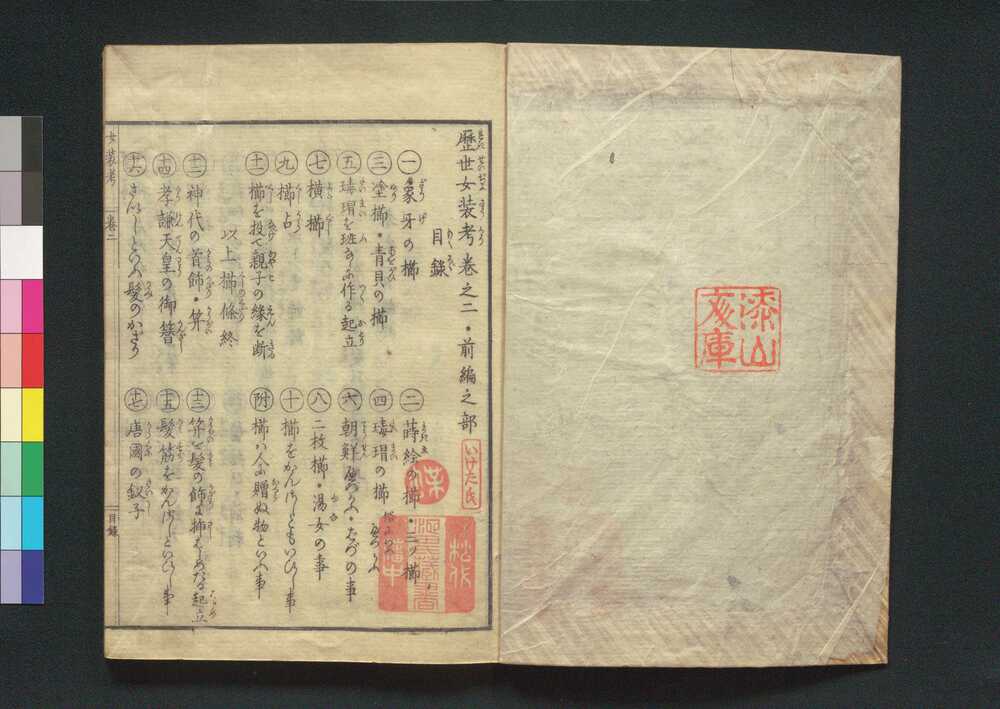 漆山
文庫
歴世女装考卷之二・前編之部
目錄
いけた氏
㊀象牙の櫛
㊁蒔絵の櫛・三ツ櫛
㊂塗櫛・青貝の櫛
㊃瑇瑁の櫛
㊄瑇瑁を斑作る起立
㊅朝鮮の事
㊆横櫛
㊇二枚櫛・湯女の事
㊈櫛占
㊉櫛をかんざしともいひし事
十一 櫛を投て親子の縁を断
附 櫛ハ人に贈ぬ物といふ事
以上櫛條終
十二 神代の首飾・笄
十三 笄を髪の飾に挿はじめたる起立
十四 孝謙天皇の御簪
十五 髪筋をかんざしといひし事
十六 さいしといふ髪のかざり
十七 唐國の釵子
女装考
卷二
目錄